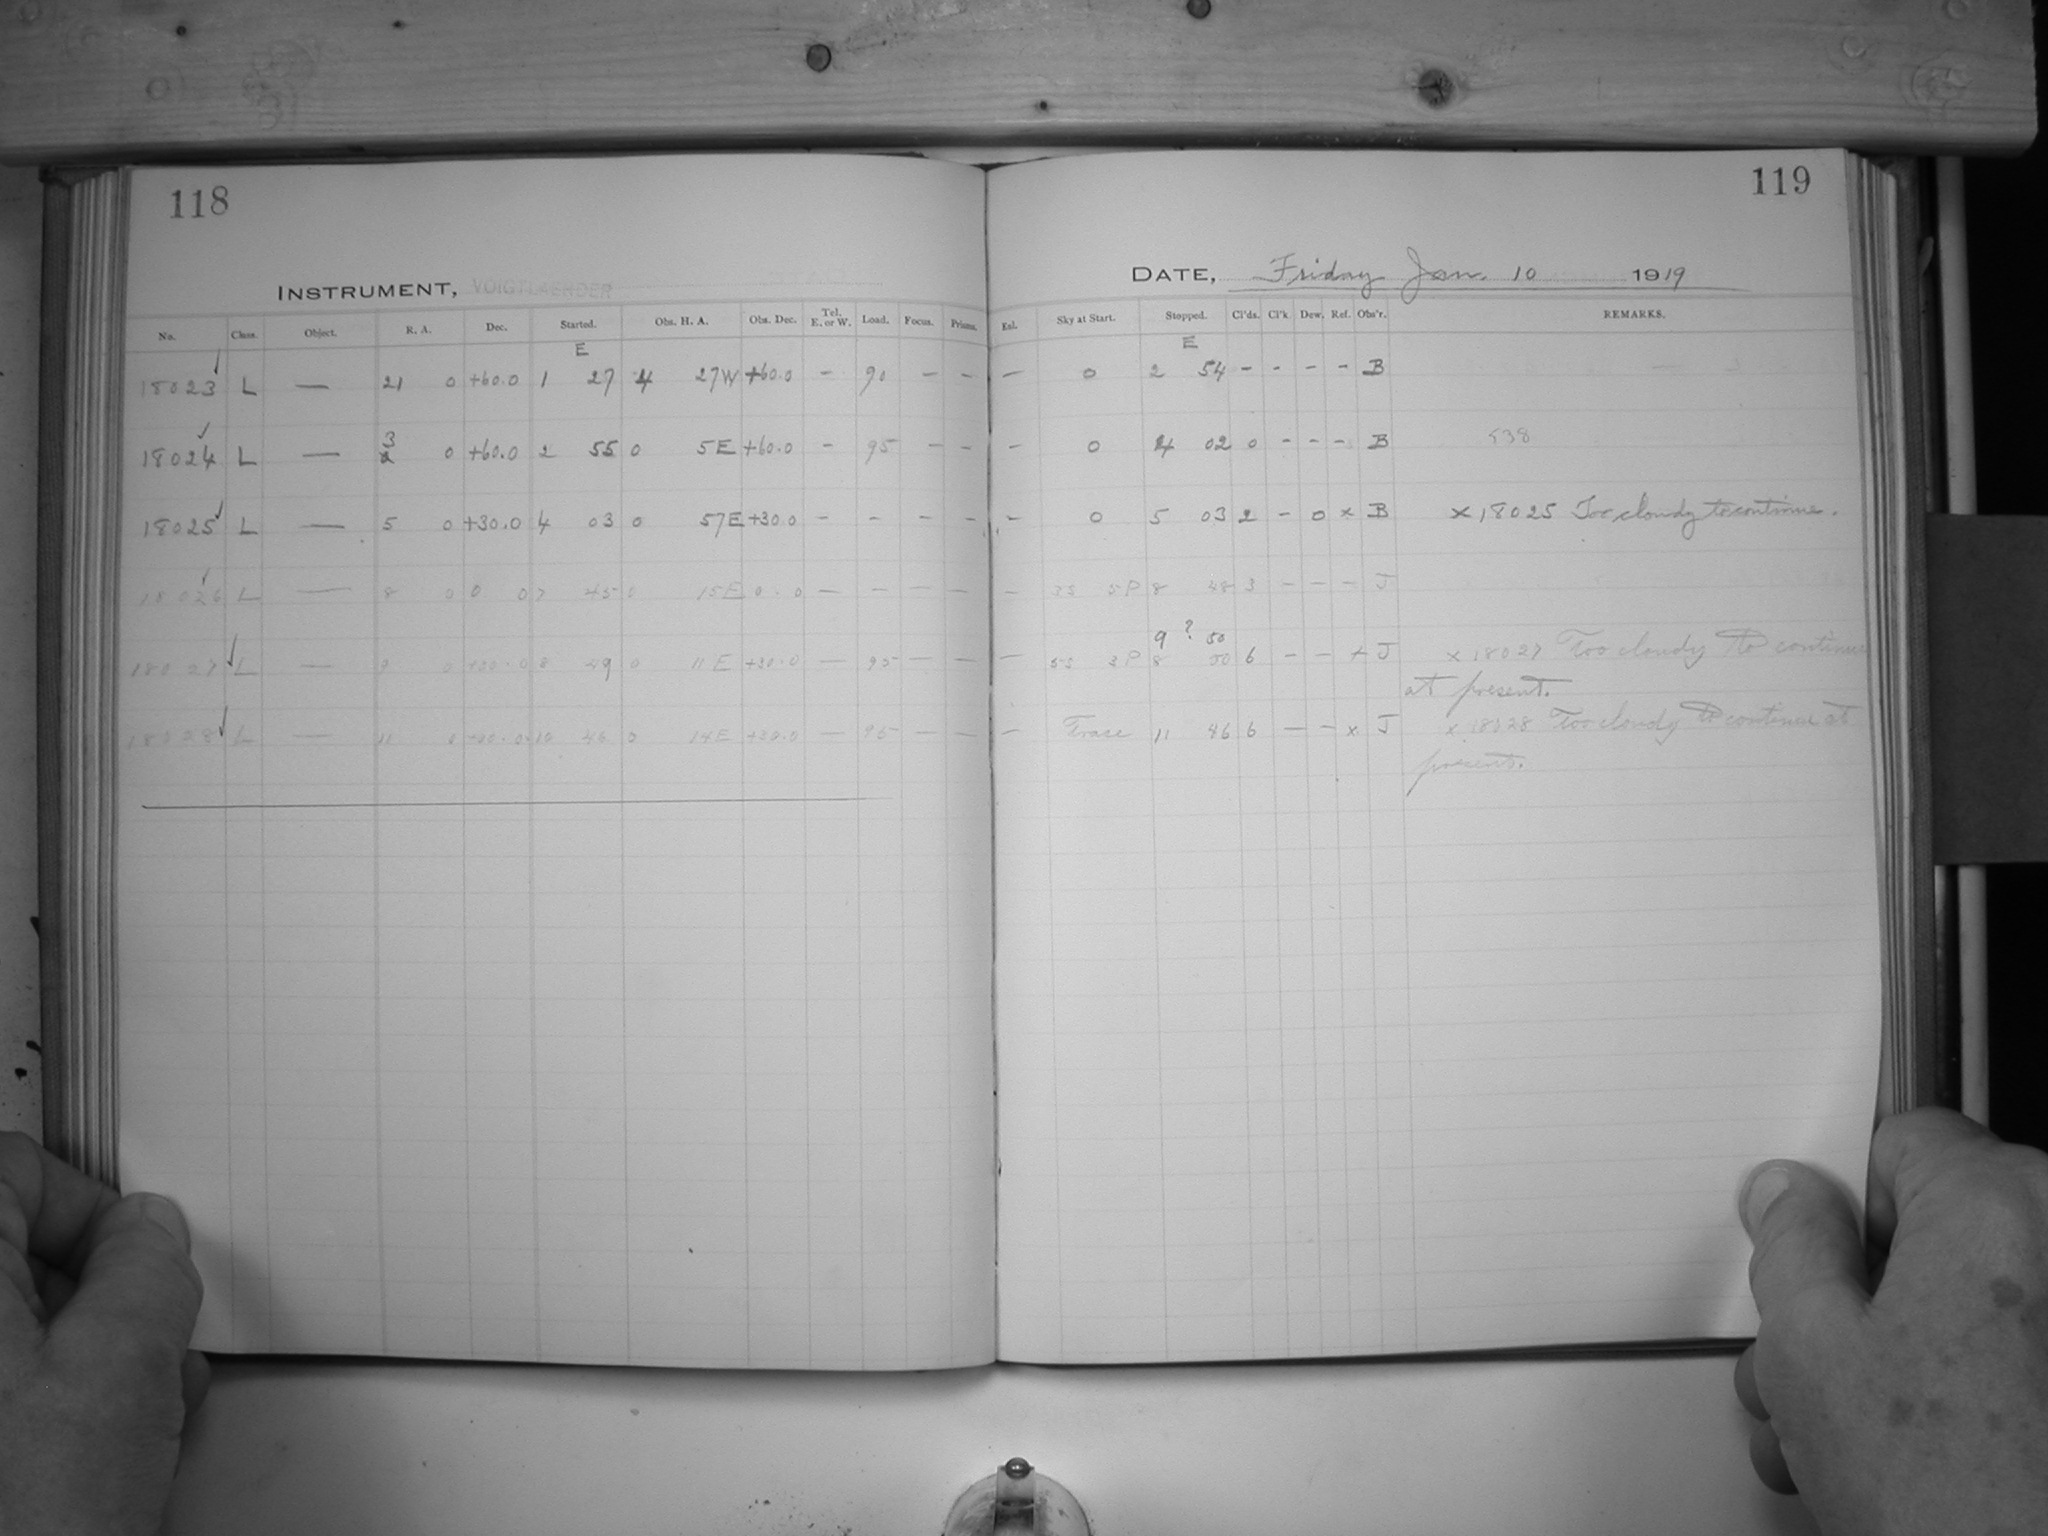 118
INSTRUMENT, VOIGTLAENDER
No. Class. Object. R. A. Dec. Started. Obs. H. A. Obs. Dec. Tel. E. or W. Load. Focus. Prisms.
E
18023 L — 21 0 +60.0 1 27 4 27W +60.0 - 90 - -
18024 L — 3 2 0 +60.0 2 55 0 5E +60.0 - 95 - -
18025 L — 5 0 +30.0 4 03 0 57E +30.0 - - - -
18026 L — 8 0 0 0 7 45 0 15E 0.0 — — — —
18027 L — 9 0 +30.0 8 49 0 11E +30.0 — 95 — —
18028 L — 11 0 +30.0 10 46 0 14E +30.0 — 95 — —
119
DATE, Friday Jan. 10 1919
Exl. Sky at Start. Stopped. Cl'ds. Cl'k. Dew. Ref. Obs'r. REMARKS.
E
— 0 2 54 - - - - B
- 0 4 02 0 - - - B 538
- 0 5 03 2 - 0 x B x 18025 Too cloudy to continue.
— 3S 5P 8 48 3 — — — J
9 ? 50
— 5S 3P 8 50 6 — — x J x 18027 Too cloudy to continue
at present.
— Trace 11 46 6 — — x J x 18028 Too cloudy to continue at
present.